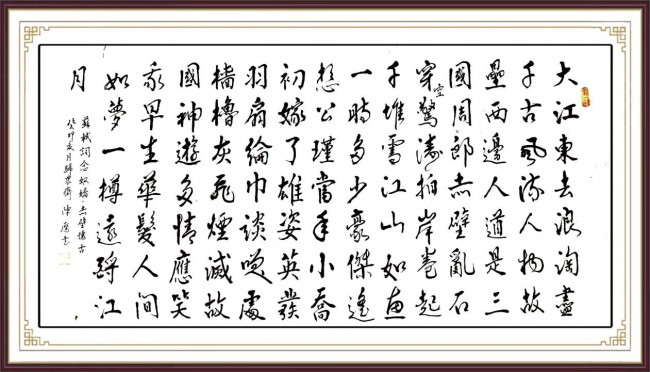 大江東去浪淘盡
千古風流人物故
壘西邊人道是三
國周郎赤壁亂石
穿空驚濤拍岸卷起
千堆雪江山如画
一時多少豪傑遙
想公瑾當年小喬
初嫁了雄姿英發
羽扇綸巾談笑處
檣櫓灰飛煙滅故
國神遊多情應笑
我早生華髮人間
如夢一樽還酹江
月
蘇軾詞念奴嬌·赤壁懷古
癸卯 月歸 齋 陳